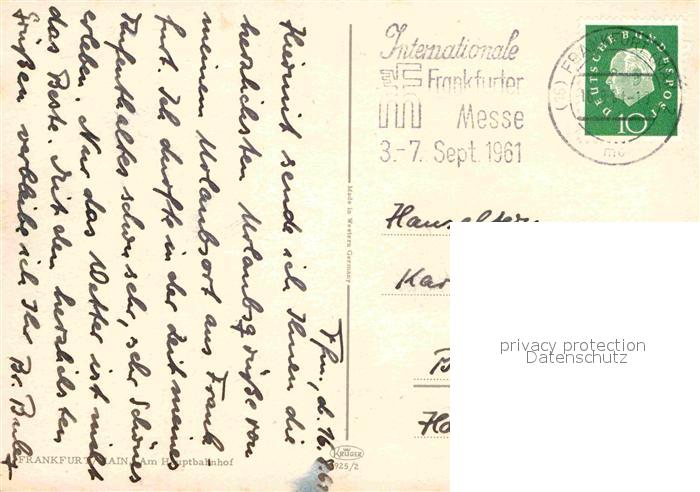 Ffm., d. 16. 8. 61
Hiermit sende ich Ihnen die
herzlichsten Urlaubsgrüße von
meinem Urlaubsort aus Frank-
furt. Ich durfte in der Zeit meines
Aufenthaltes schon sehr, sehr Schönes
erleben. Nur das Wetter ist nicht
das Beste. Mit den herzlichsten
Grüßen verbleibe ich Ihr Br.
FRANKFURT MAIN, Am Hauptbahnhof
Made in Western Germany
KRÜGER
925/2
Internationale
Frankfurter
Messe
3.-7. Sept. 1961
(16) FRANKFURT
mc
DEUTSCHE BUNDESPOST
10
Hauseltern
Kar
Ha
privacy protection
Datenschutz